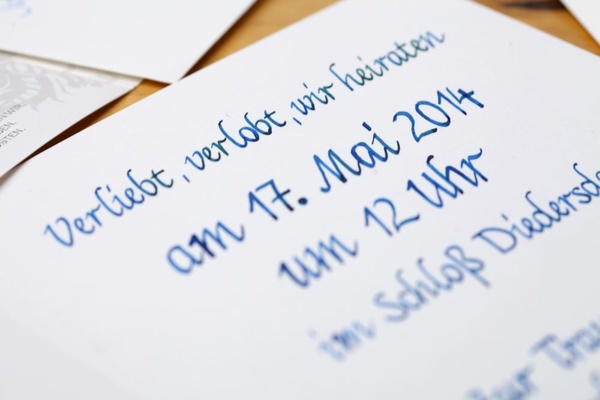 Verliebt, verlobt, wir heiraten
am 17. Mai 2014
um 12 Uhr
im Schloß